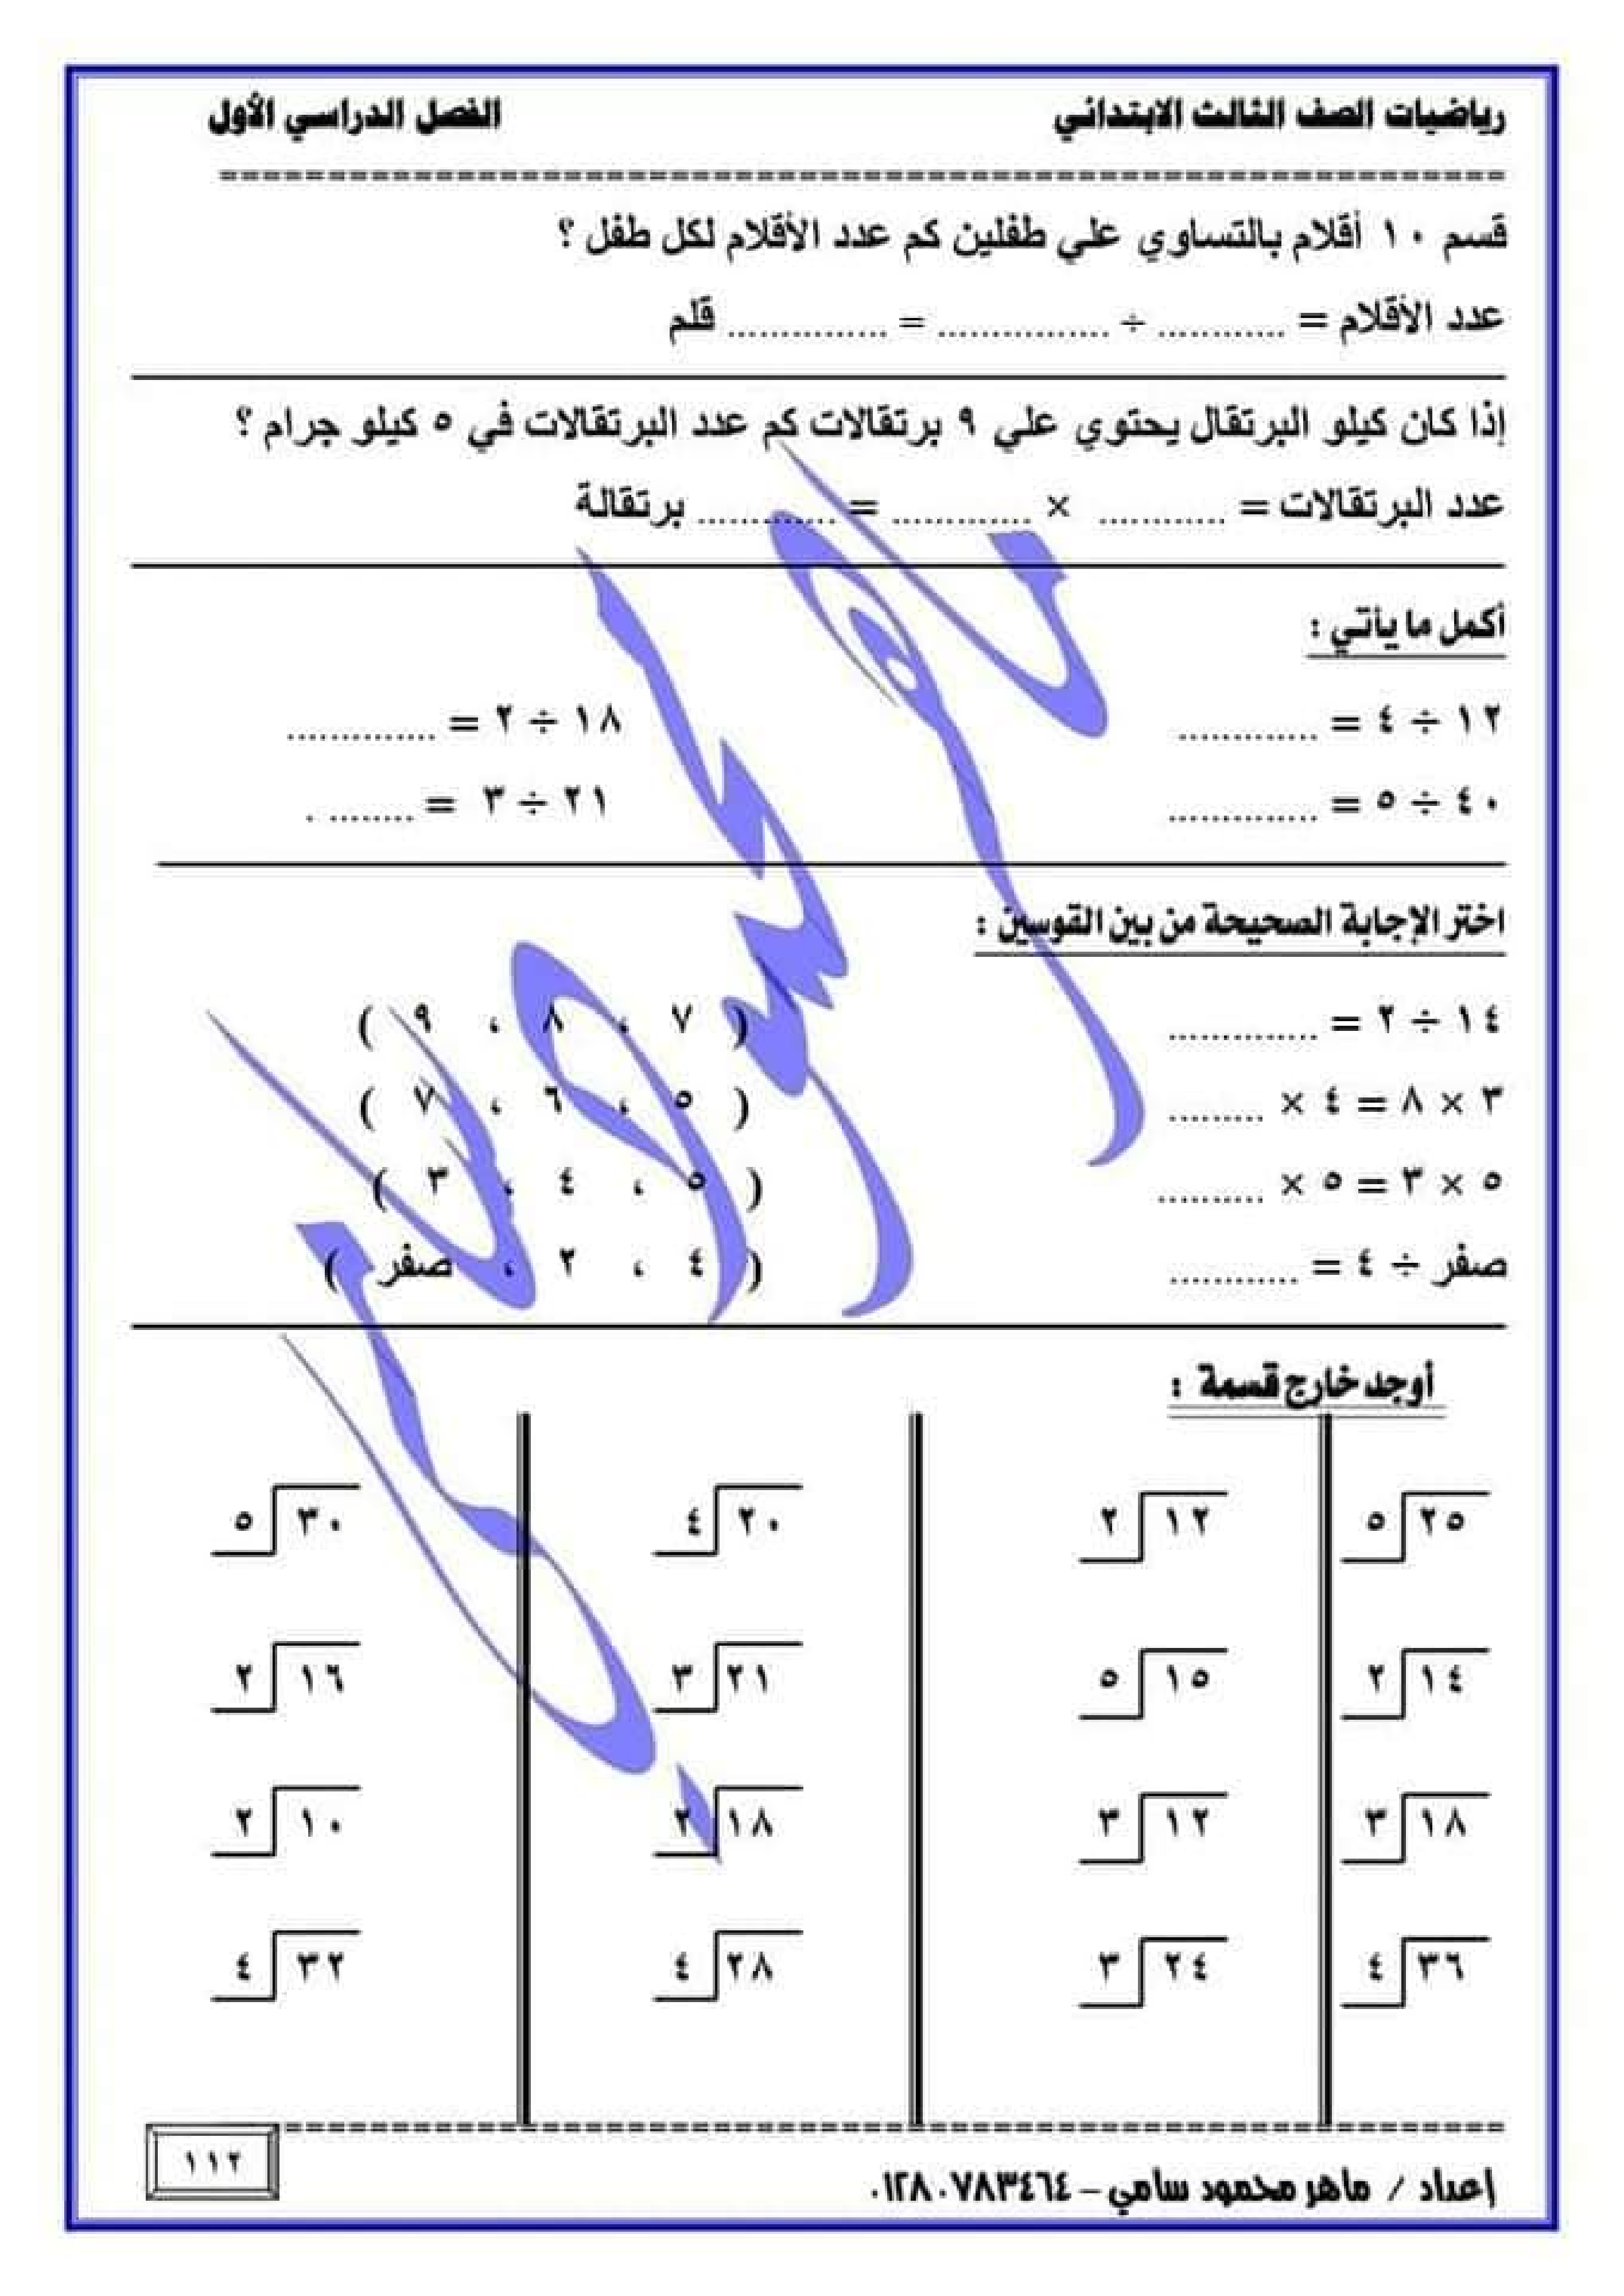 رياضيات الصف الثالث الابتدائي الفصل الدراسي الأول
قسم ١٠ أقلام بالتساوي علي طفلين كم عدد الأقلام لكل طفل ؟
عدد الأقلام = ............ ÷ ................ = ............... قلم
إذا كان كيلو البرتقال يحتوي علي ٩ برتقالات كم عدد البرتقالات في ٥ كيلو جرام ؟
عدد البرتقالات = ............ × ............. = ............. برتقالة
أكمل ما يأتي :
١٢ ÷ ٤ = ............. ١٨ ÷ ٢ = ..............
٤٠ ÷ ٥ = .............. ٢١ ÷ ٣ = ........ .
اختر الإجابة الصحيحة من بين القوسين :
١٤ ÷ ٢ = .............. ( ٧ ، ٨ ، ٩ )
٣ × ٨ = ٤ × ......... ( ٥ ، ٦ ، ٧ )
٥ × ٣ = ٥ × .......... ( ٥ ، ٤ ، ٣ )
صفر ÷ ٤ = ............ ( ٤ ، ٢ ، صفر )
أوجد خارج قسمة :
٢٥ ٥ ١٢ ٢ ٢٠ ٤ ٣٠ ٥
١٤ ٢ ١٥ ٥ ٢١ ٣ ١٦ ٢
١٨ ٣ ١٢ ٣ ١٨ ٢ ١٠ ٢
٣٦ ٤ ٢٤ ٣ ٢٨ ٤ ٣٢ ٤
إعداد / ماهر محمود سامي – ٠١٢٨٠٧٨٣٤٦٤
١١٢